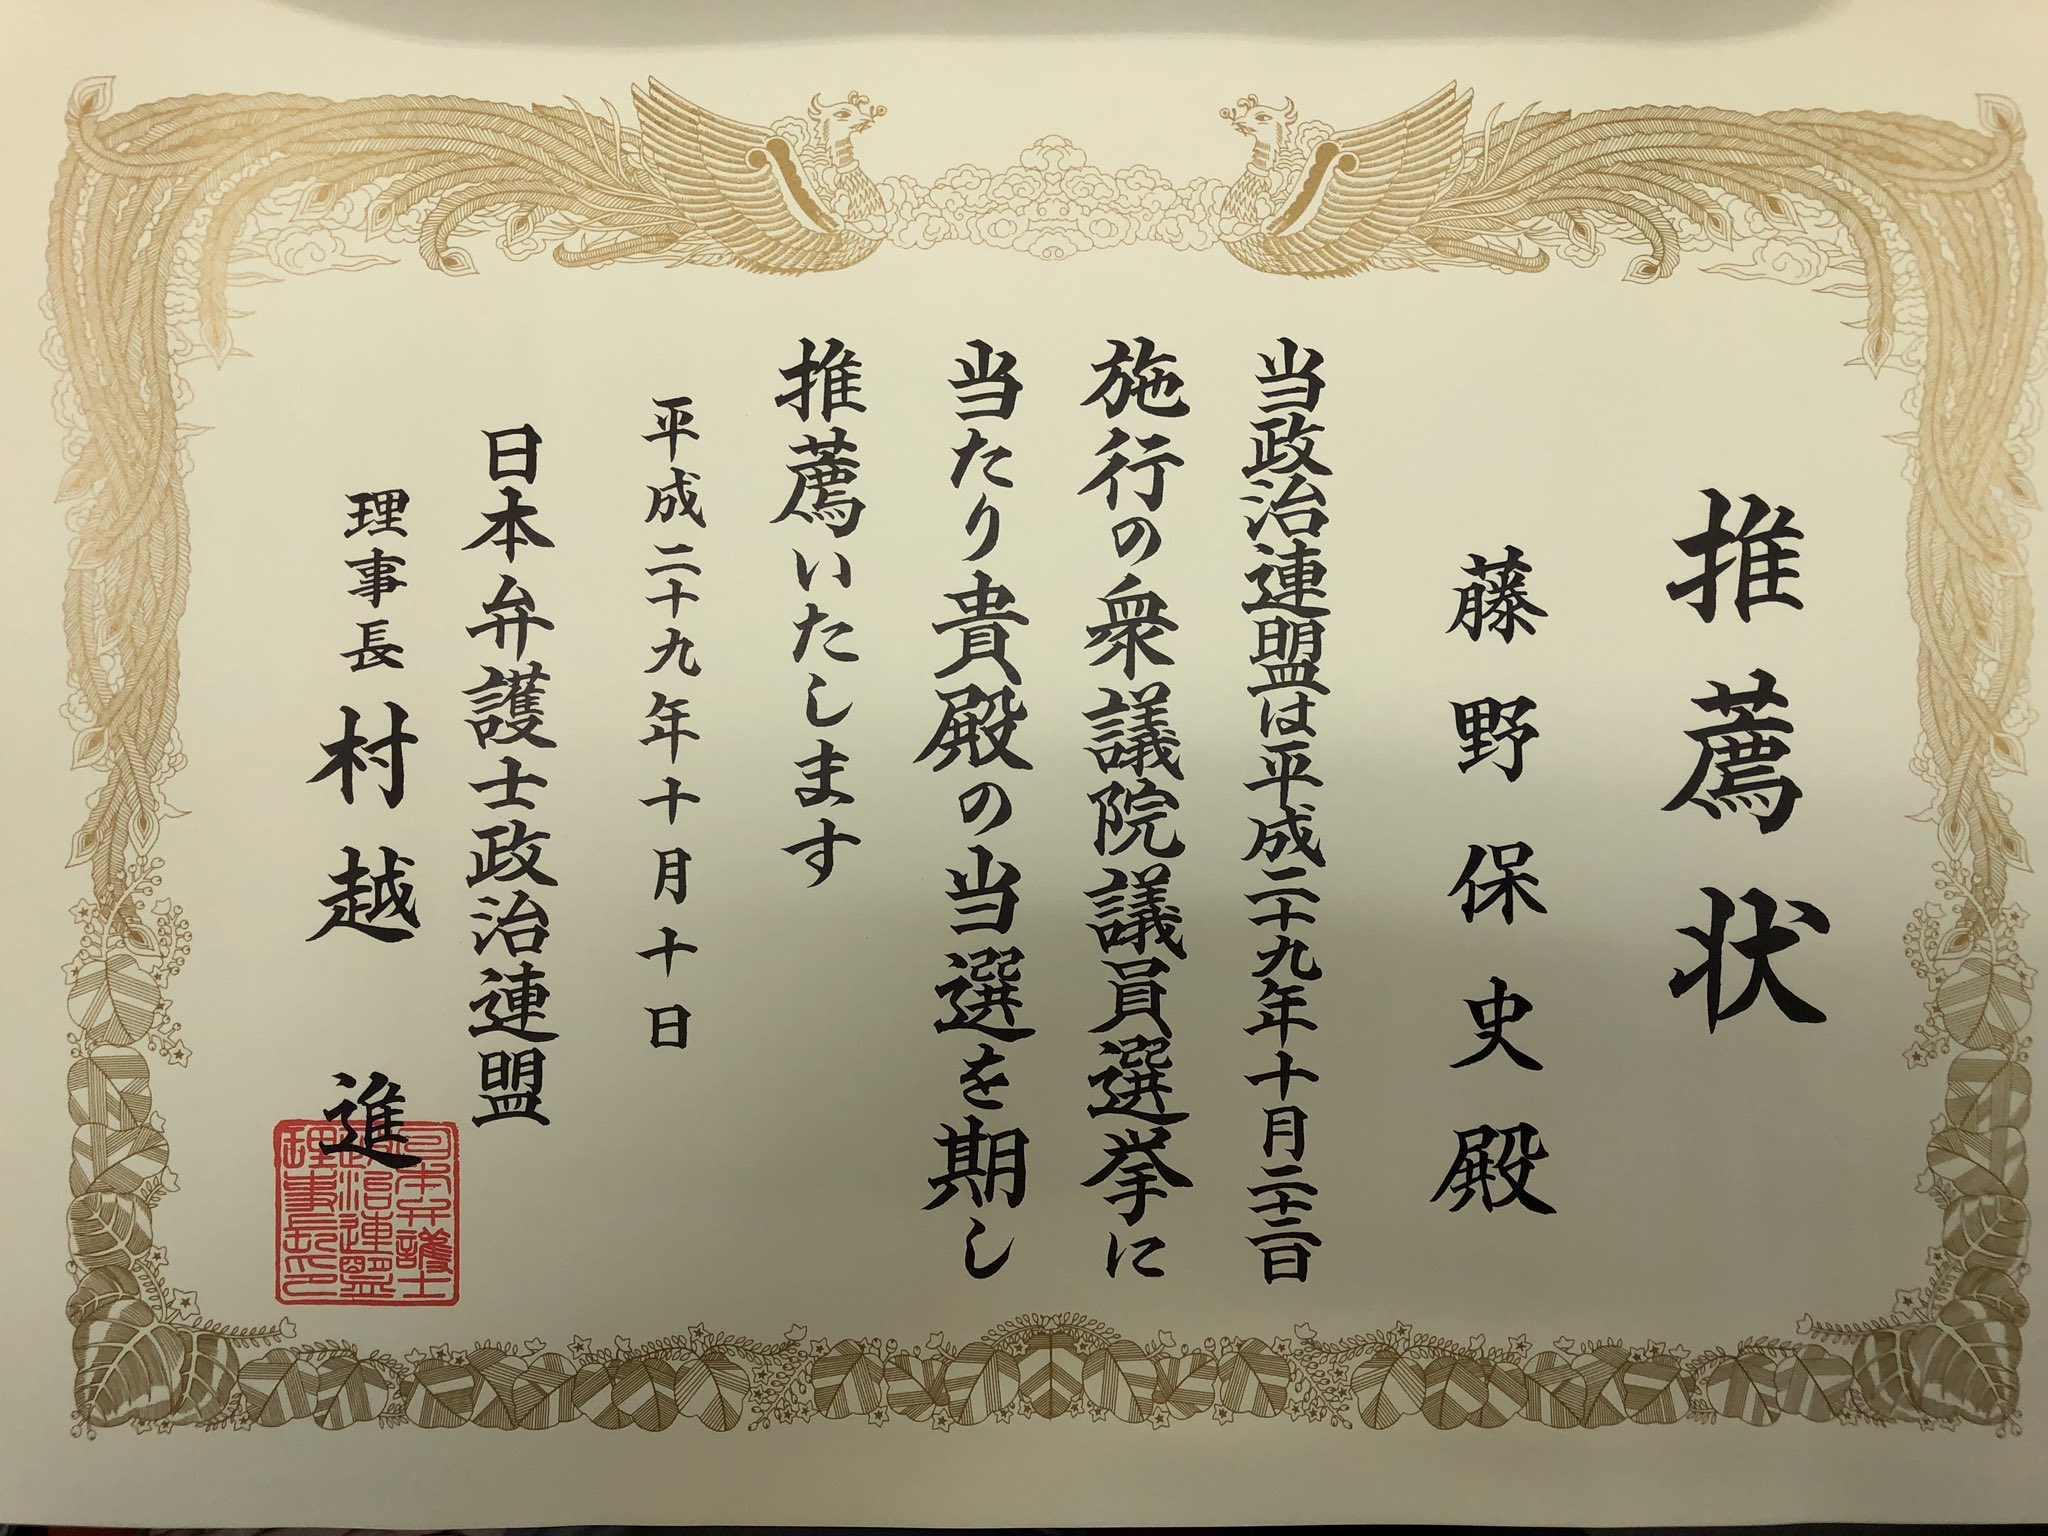 推薦状
藤野保史殿
当政治連盟は平成二十九年十月二十二日
施行の衆議院議員選挙に
当たり貴殿の当選を期し
推薦いたします
平成二十九年十月十日
日本弁護士政治連盟
理事長 村越 進
日本弁護士
政治連盟
理事長之印